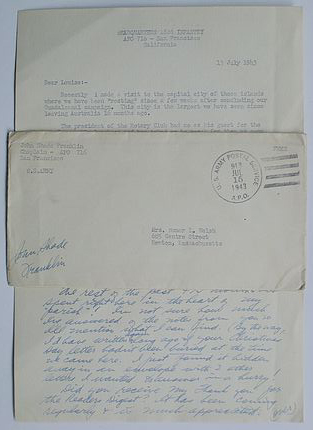 HEADQUARTERS 182d INFANTRY
APO 716 - San Francisco
California
15 July 1943
Dear Louise:-
Recently I made a visit to the capital city of these islands
where we have been "resting" since a few weeks after concluding our
Guadalcanal campaign. This city is the largest we have seen since
leaving Australia 16 months ago.
The president of the Rotary Club had me his guest for the
John Shade Franklin
Chaplain - APO 716
San Francisco
U.S.ARMY
FREE
U.S. ARMY POSTAL SERVICE
JUL
16
1943
A.P.O.
Mrs. Homer I. Welsh
Centre Street
Newton, Massachusetts
John Shade
Franklin
the rest of the past
spent right here in the heart of my
"parish". I'm not sure how much
I've answered of the notes on you
did mention I can find. (By the way,
I have written long ago if your Christmas
Day letter hadn't been buried at the time
it came here. I just found it hidden
away in an envelope with 2 other
letters I wanted in a hurry!
Did you receive my thank you for
the Readers Digest? It has been coming
regularly & is much appreciated. (over)